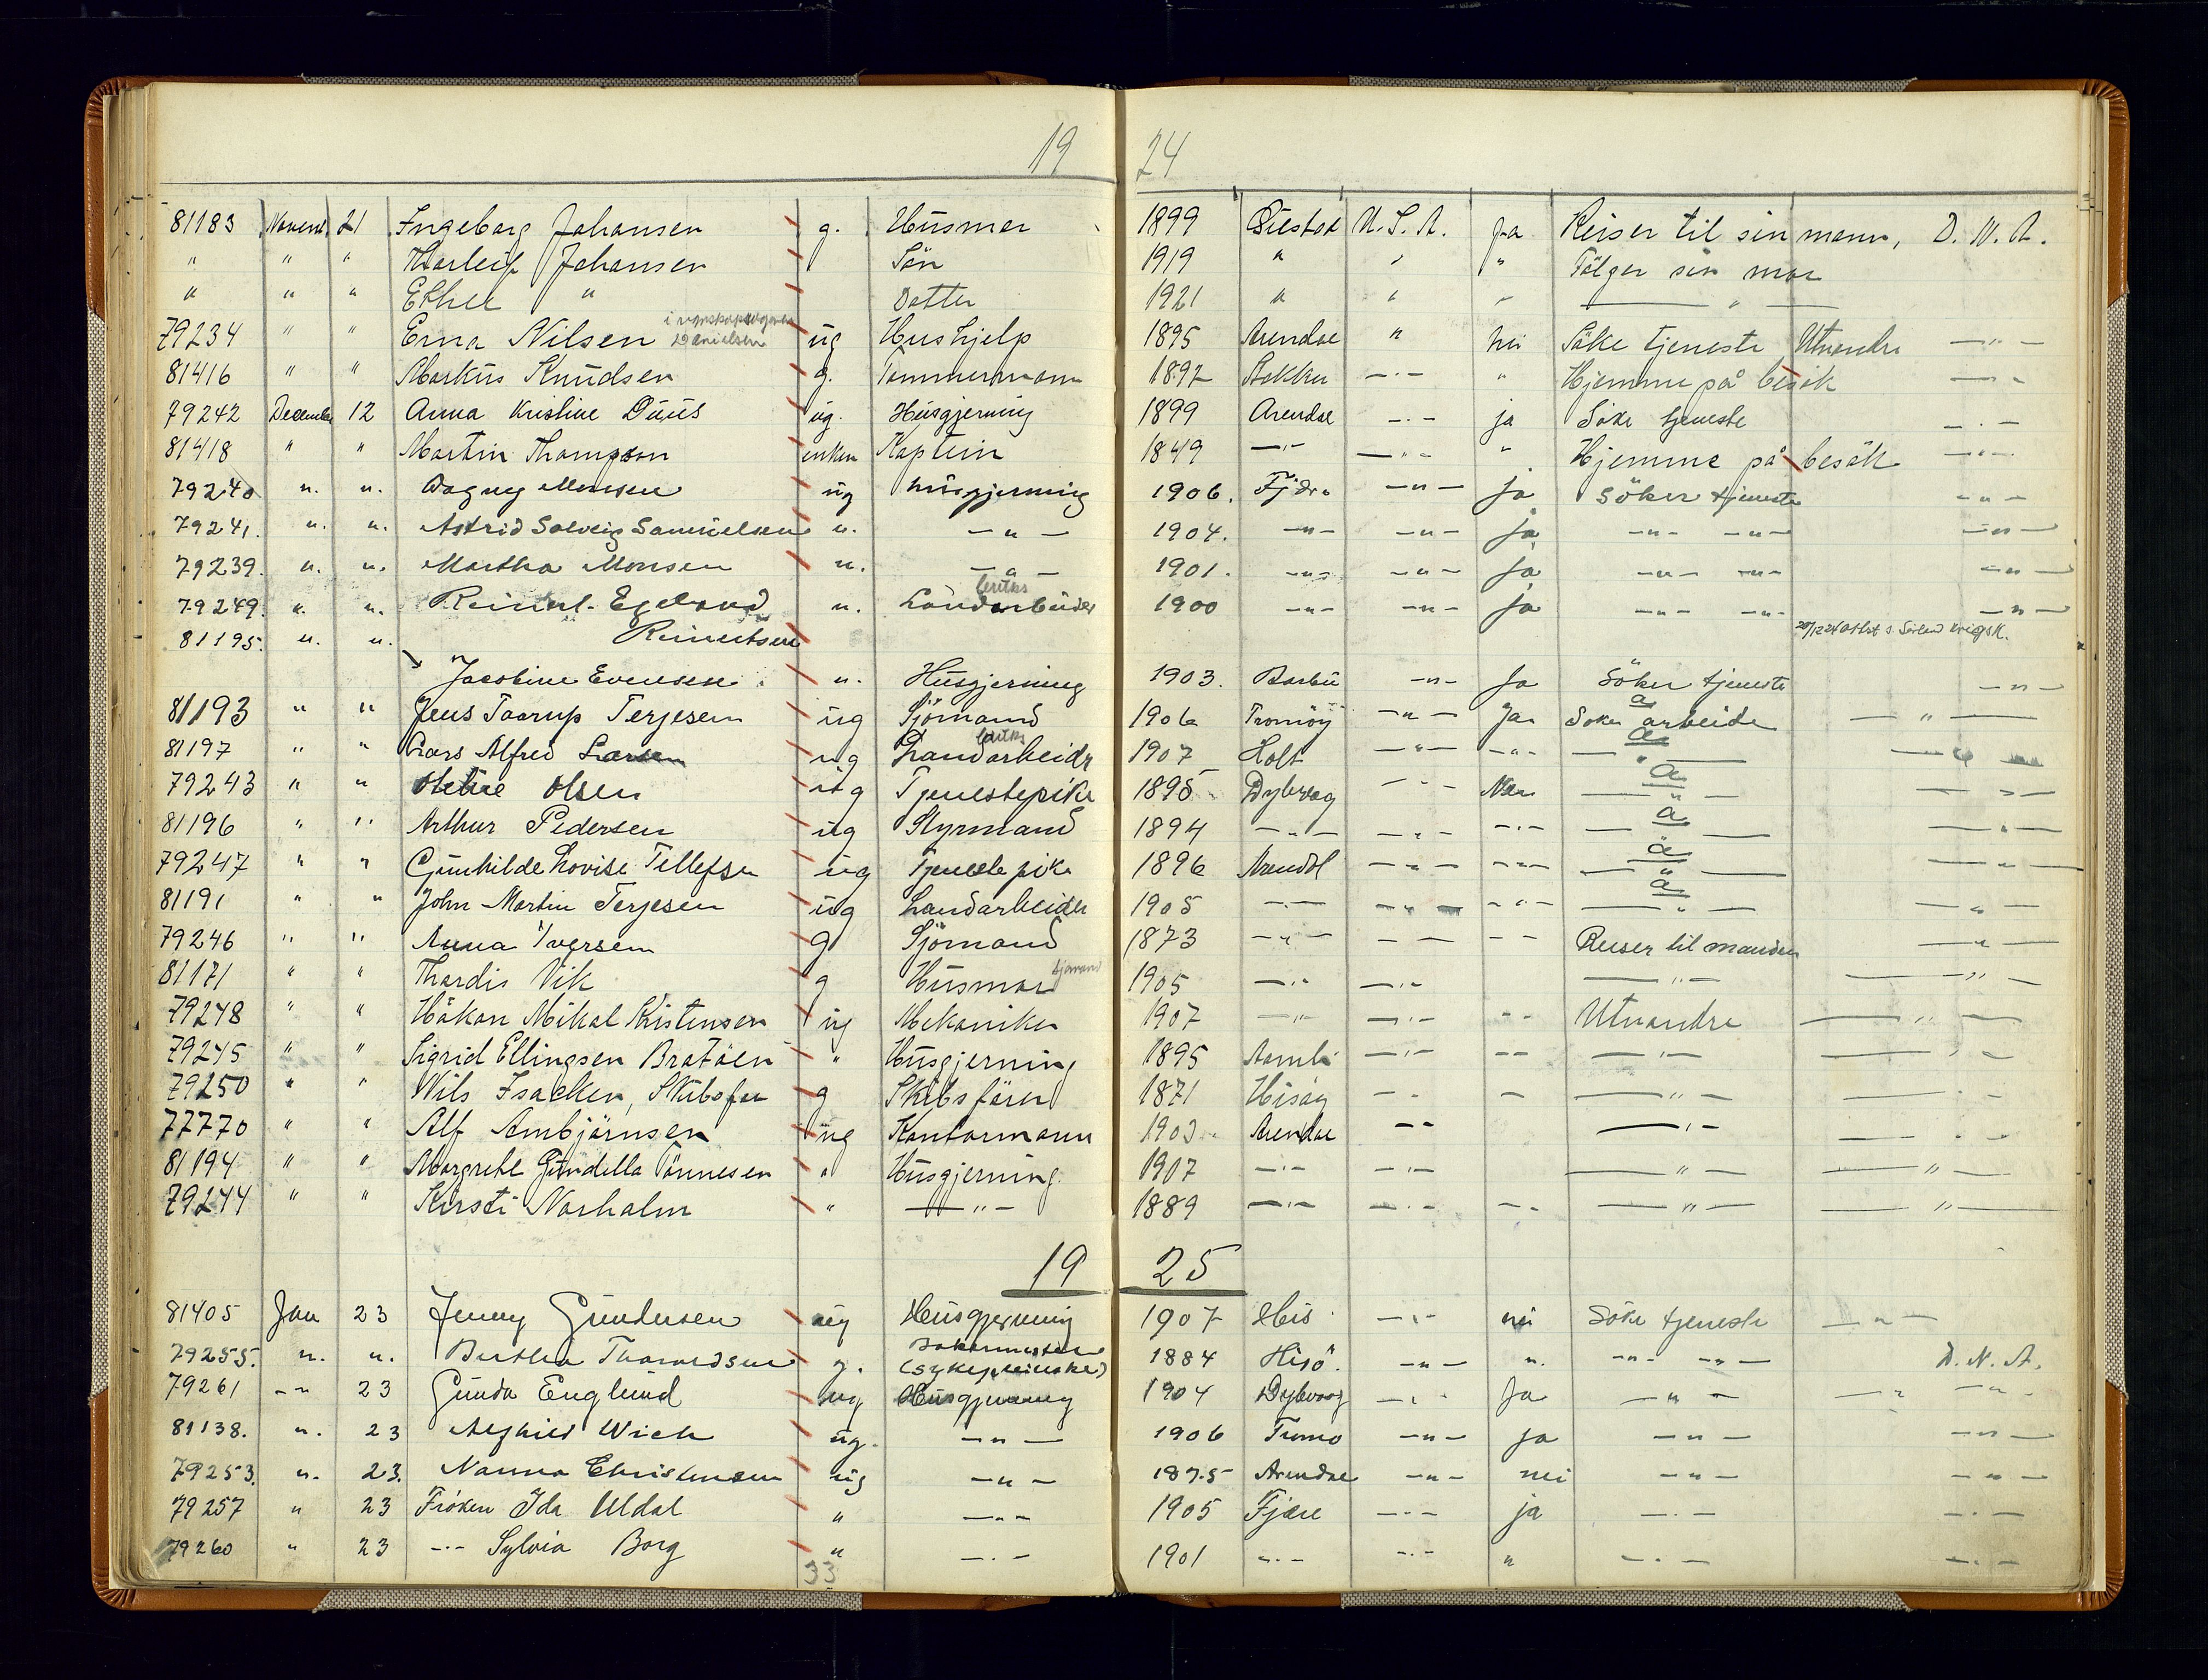 19 24
81183 Novemb 21 Ingeborg Johansen g. Husmor 1899 Öiestad U.S.A. Ja Reiser til sin mann, D.N.A.
" " " Thorleif Johansen Sön 1919 " " " Fölger sin mor
" " " Ethel " Datter 1921 " " " — " —
Danielsen
79234 " " Erna Nilsen ug Hushjelp 1895 Arendal " nei Söke tjeneste Utvandre — " —
81416 " " Markus Knudsen g. Tømmermann 1892 — " — " Hjemme på besök — " —
79242 December 12 Anna Kristine Duus ug. Husgjerning 1899 Arendal — " — ja Söke tjeneste — " —
81418 " " Martin Thompson enken Kaptein 1849 — " — — " — " Hjemme på besök — " —
79240 " " Dagny Monsen ug husgjerning 1906. Fjære — " — ja Söker tjeneste — " —
79241. " " Astrid Solveig Samuelsen " — " — 1904. — " — — " — ja — " — — " — — " —
79239. " " Martha Monsen " — " — 1901. — " — — " — ja — " — — " — — " —
79249. " " Reinert Egeland " Landarbeider 1900 — " — — " — ja — " — — " — — " —
81195. " " Reinertsen
Jacobine Evensen " Husgjerning 1903. Barbu — " — Ja Söker tjeneste — " —
81193 " " Jens Taarup Terjesen ug Sjömand 1906 Tromöy — " — Ja Soker arbeide — " —
81197 " " Lars Alfred Larsen ug Landarbeidr 1907 Holt — " — — " — — " — — " —
79243 " " Olsen ug Tjenestepike 1895 Dybvag — " — Nei — " — — " —
81196 " " Arthur Pedersen ug Styrmand 1894 — " — — " — — " — — " — — " —
79247 " " Gunhilde Lovise Tellefsen ug Tjenestepike 1896 Arendal — " — — " — — " — — " —
81191 " " John Martin Terjesen ug Landarbeider 1905 — " — — " — — " — — " — — " —
79246 " " Anna Iversen g Sjömand 1873 — " — — — — — Reiser til manden — " —
81171 " " Thordis Vik g Husmor 1905 — " — — " — — " — — " —
79248 " " Håkon Mikal Kristensen ug Mekaniker 1907 — " — — " — — — Utvandre — " —
79245 " " Sigrid Ellingsen Bratöen " Husgjerning 1895 Aamli — " — — — — " — — " —
79250 " " Nils Isachen, Skibsfør g Skibsförer 1871 Hisöy — " — — — " — — " —
77770 " " Alf Ambjörnsen ug Kontormann 1903 Arendal — — — " — — " —
81194 " " Margrethe Gundella Tönnesen " Husgjerning 1907 — " — — " — — " — — " —
79244 " " Kirsti Norholm " — " — 1889 — " — — " — — " — — " — — " —
19 25
81405 Jan 23 Jenny Gundersen ug Husgjerning 1907 His — " — nei Söke tjeneste — " —
79255. " " Bertha Thorvardsen g. (sykepleierske) 1884 Hisö. — " — " — " — — " — D.N.A.
79261 — " 23 Gunda Englund ug Husgjerning 1904 Dybvaag — " — Ja — " — — " — — " —
81138. " 23 Wick ug. — " — 1906 Tromö — " — ja — " — — " —
79253. " 23. Nanna Christensen ug — " — 1875 Arendal — " — nei — " — — " —
79257 " 23 Fröken Ida Uldal " — " — 1905 Fjære — " — ja — " — — " —
79260 " 23 — " — Sylvia Borg " — " — 1901 — " — — " — " — " — — " —
33